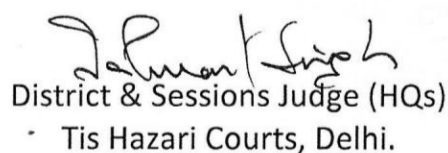 Singh
District & Sessions Judge (HQs)
Tis Hazari Courts, Delhi.